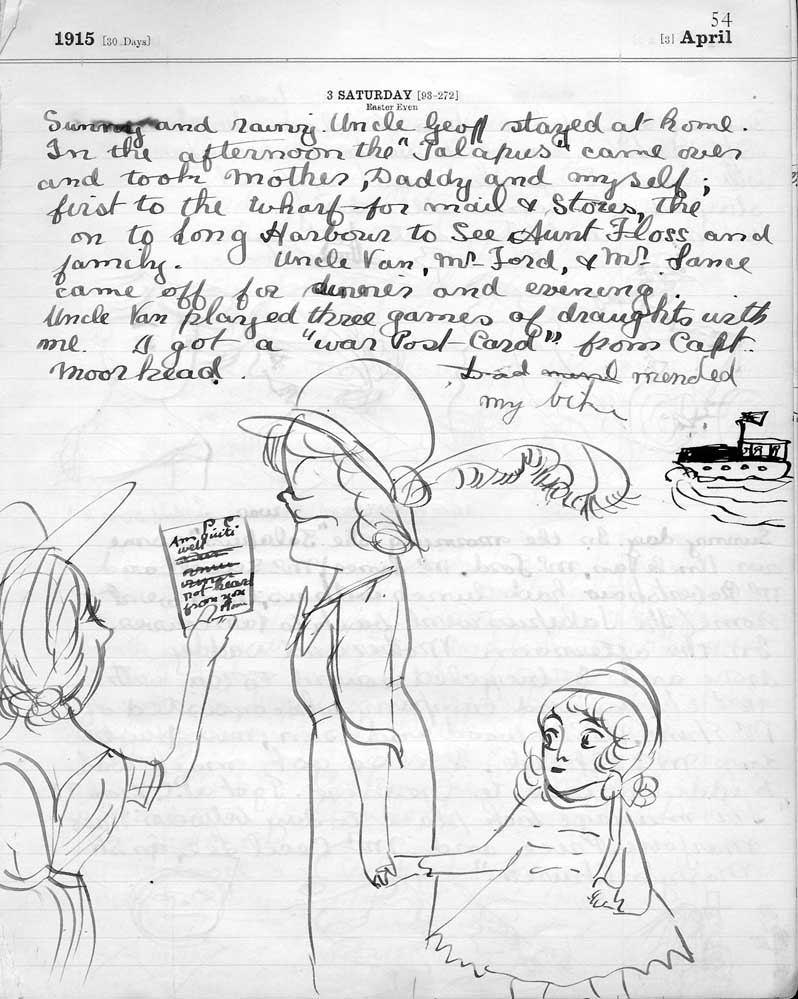 54
1915 [30 Days] [3] April
3 SATURDAY [93-272]
Easter Even
Sunny and rainy. Uncle Geoff stayed at home.
In the afternoon the "Jalapus" came over
and took Mother, Daddy and myself;
first to the wharf for mail & Stores, the
on to Long Harbour to See Aunt Floss and
family. Uncle Van, Mr Ford, & Mr. Lance
came off for dinner and evening.
Uncle Van played three games of draughts with
me. I got a "war Post-Card" from Capt.
Moorhead. mended
my bike
P C
Am quite
well
not hear
from you